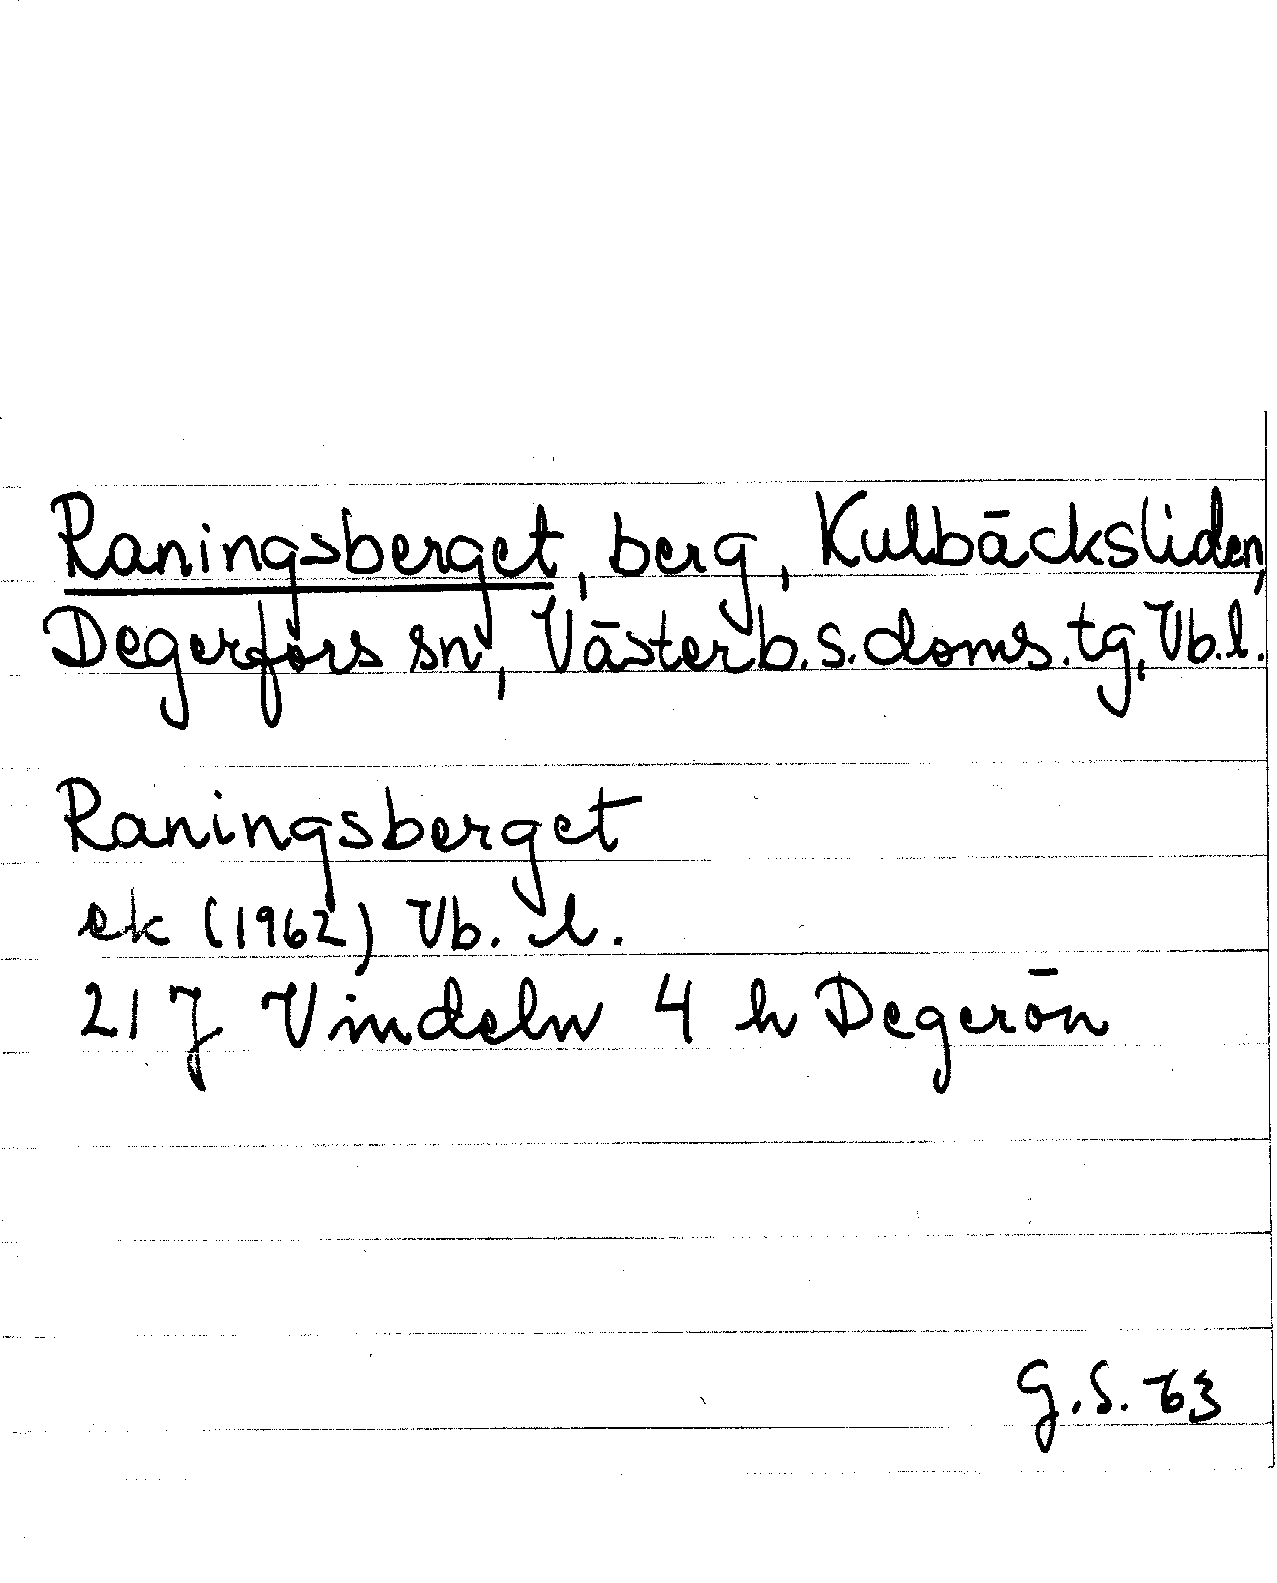 Raningsberget, berg, Kulbäcksliden,
Degerfors sn, Västerb.s.doms.tg, Vb.l.
Raningsberget
ek (1962) Vb. l.
21 J Vindeln 4 h Degerön
G.S. 63